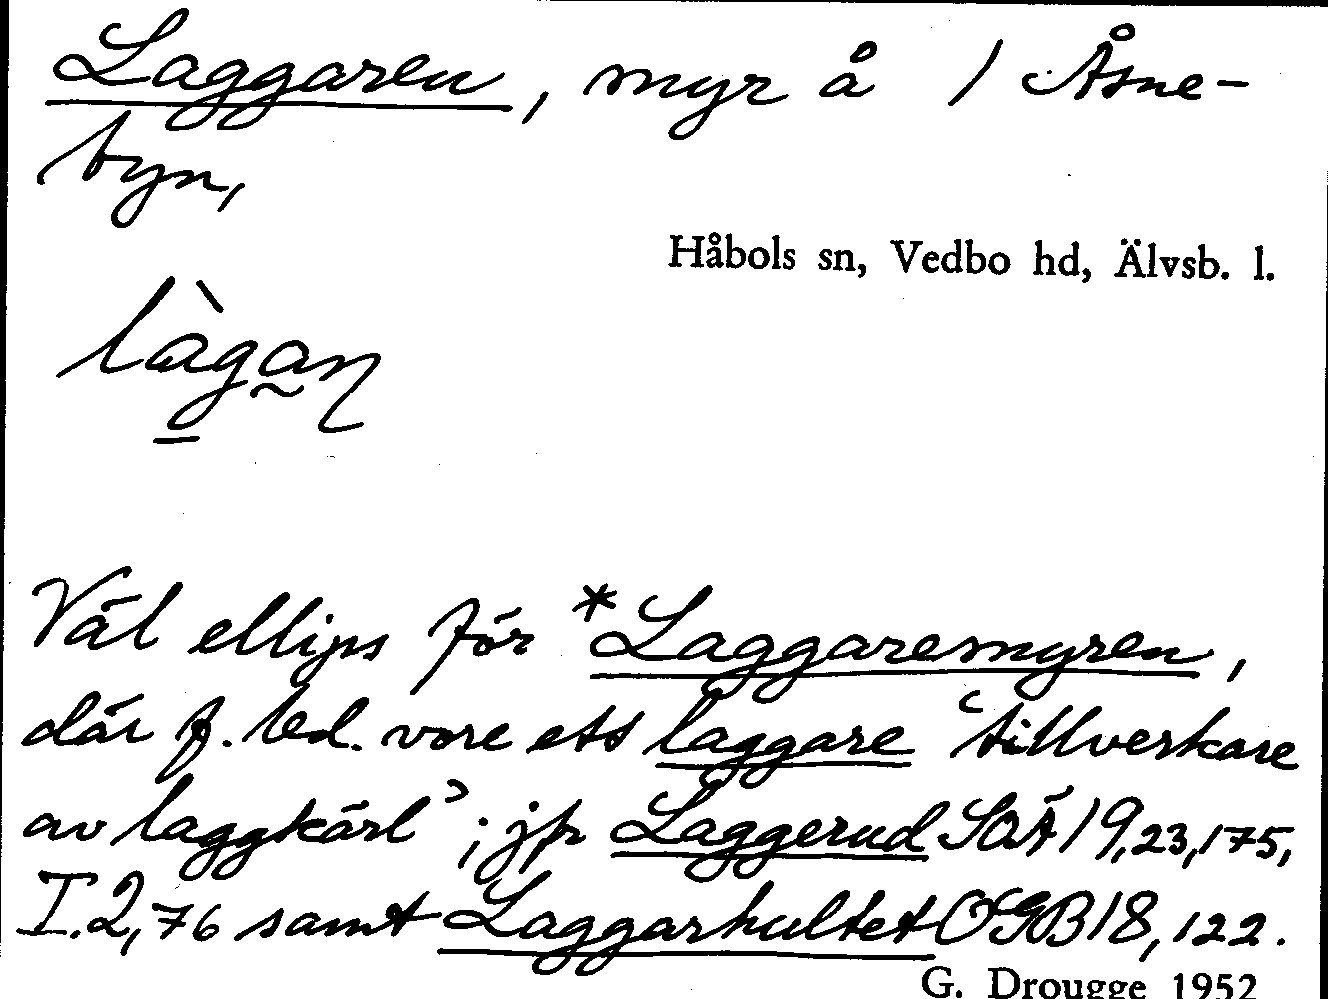 Laggaren, myr å 1 Åsne-
byn,
Håbols sn, Vedbo hd, Älvsb. l.
làgan
Väl ellips för *Laggaremyren,
där f. led. vore ett laggare ‘tillverkare
av laggkärl’; jfr Laggerud SOÄ 19,23,175,
I.2,76 samt Laggarhultet OGB 18, 122.
G. Drougge 1952